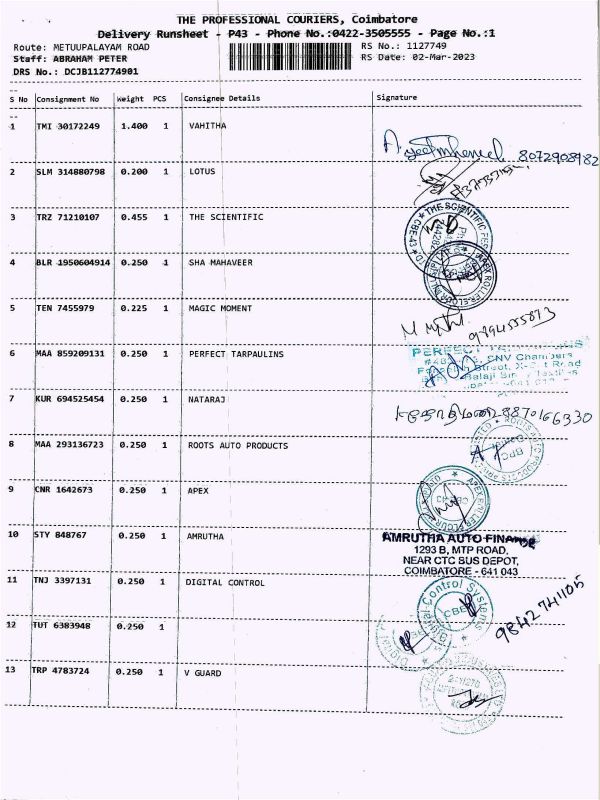 THE PROFESSIONAL COURIERS, Coimbatore
Delivery Runsheet - P43 - Phone No.:0422-3505555 - Page No.:1
Route: METUUPALAYAM ROAD RS No.: 1127749
Staff: ABRAHAM PETER RS Date: 02-Mar-2023
DRS No.: DCJB112774901
S No Consignment No Weight PCS Consignee Details Signature
1 TMI 30172249 1.400 1 VAHITHA
8072908982
2 SLM 314880798 0.200 1 LOTUS
3 TRZ 71210107 0.455 1 THE SCIENTIFIC
THE SCIENTIFIC
CBE-43
4 BLR 1950604914 0.250 1 SHA MAHAVEER
APEX ROLLER
5 TEN 7455979 0.225 1 MAGIC MOMENT
6 MAA 859209131 0.250 1 PERFECT TARPAULINS
PERFECT
CNV Chambers
Street,
Road
Balaji
7 KUR 694525454 0.250 1 NATARAJ
8870166330
8 MAA 293136723 0.250 1 ROOTS AUTO PRODUCTS
ROOTS AUTO PRODUCTS
BPC
9 CNR 1642673 0.250 1 APEX
APEX ROLLER
10 STY 848767 0.250 1 AMRUTHA
AMRUTHA AUTO FINANCE
1293 B, MTP ROAD,
NEAR CTC BUS DEPOT,
COIMBATORE - 641 043
11 TNJ 3397131 0.250 1 DIGITAL CONTROL
Digital Control Systems
CBE
9842741105
12 TUT 6383948 0.250 1
Digital
13 TRP 4783724 0.250 1 V GUARD